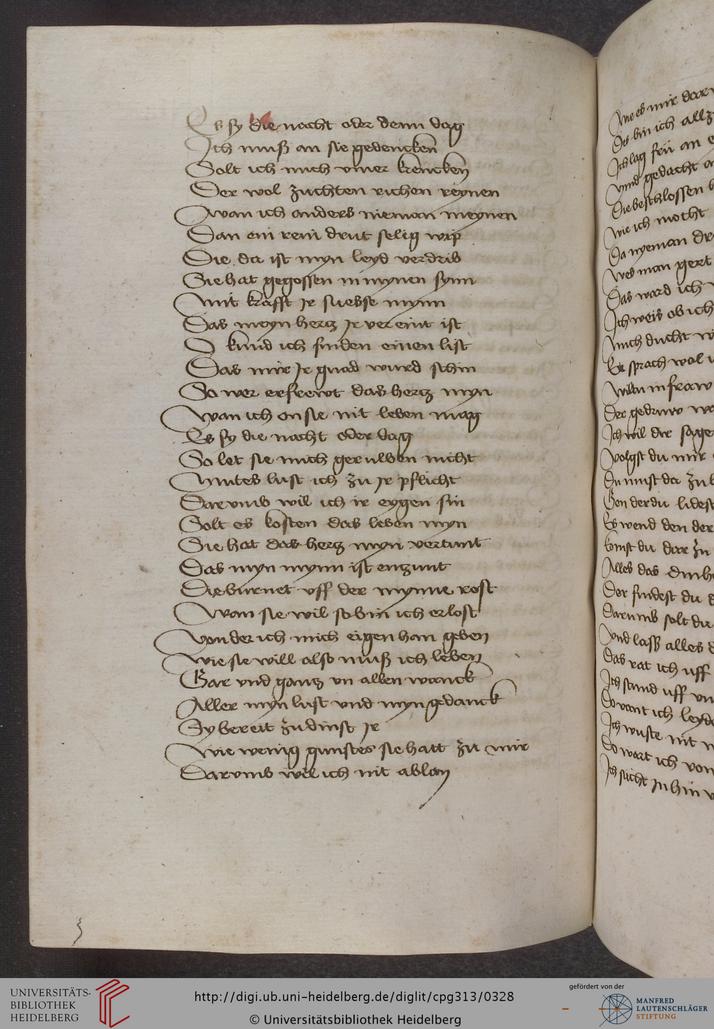 Es sy die nacht oder denn dag
Ich muß an sie gedencken
Solt ich mich vmer krencken
Der wol zuchten richen reynen
wan ich anders nieman meynen
Dan ein rein drut selig wip
Die da ist myn leyd verdrib
Sie hat gegossen in mynen synn
mit krafft Ir suesse mynn
Das meyn hertz Ir vereint ist
O kund ich finden einen list
Das mir Ir gnad wurd schin
So wer erfrewt das hertz myn
wan ich on sie nit leben mag
Es sy die nacht oder dag
So let sie mich geruwen nicht
mites lust ich zu Ir pflicht
Darvmb wil ich ir eygen sin
Solt es kosten das leben myn
Sie hat das hertz myn verwunt
Das myn mynn ist enzunt
Die burnet vff der mynne rost
wan sie wil so bin ich erlost
von der ich mich eigen han geben
wie sie will also muß ich leben
Gar vnd gantz on allen wanck
Aller myn lust vnd myn gedanck
Sy bereit zu dinst Ir
wie wenig gunstes sie hatt zu mir
Darvmb wil ich nit ablan
wie es mir dar
Des bin ich allz
Ich lag frü an
vnnd gedacht
Die beschlossen
wie ich mocht
Da nyeman
wes man gert
Das ward ich
Ich weis ob ich
mich ducht
Er sprach wol
Der gedruw
Ich wil dir sage
volgst du mir
Du must da zu
Von der du lidest
Es wend den der
komst du dar zu
Alles das
Der findest du
Darumb solt du
vnd lass alles
Das rat ich vff
Ich stund vff
Do want ich leyd
Ich wuste nit
Do wart ich von
Ich sicht In hin
UNIVERSITÄTS-
BIBLIOTHEK
HEIDELBERG
http://digi.ub.uni-heidelberg.de/diglit/cpg313/0328
© Universitätsbibliothek Heidelberg
gefördert von der
MANFRED
LAUTENSCHLÄGER
STIFTUNG